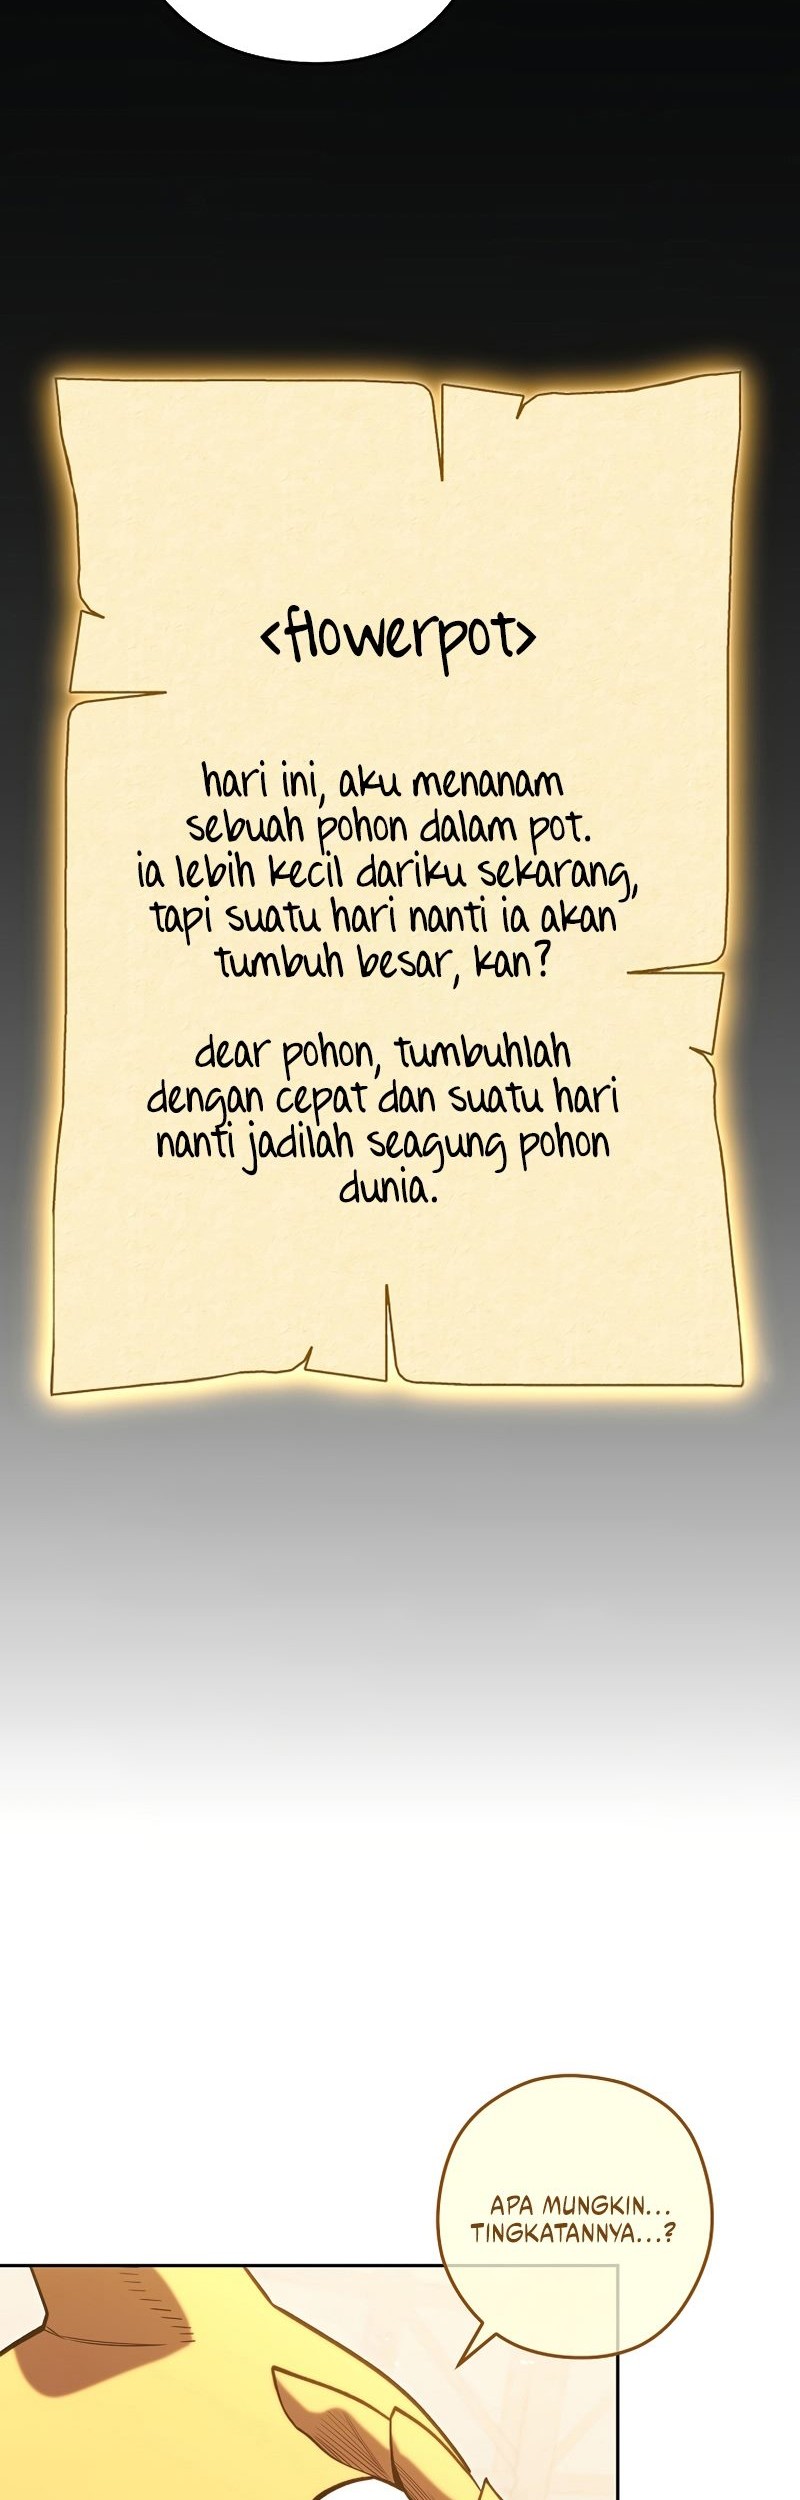 <flowerpot>
hari ini, aku menanam
sebuah pohon dalam pot.
ia lebih kecil dariku sekarang,
tapi suatu hari nanti ia akan
tumbuh besar, kan?
dear pohon, tumbuhlah
dengan cepat dan suatu hari
nanti jadilah seagung pohon
dunia.
APA MUNGKIN...
TINGKATANNYA...?